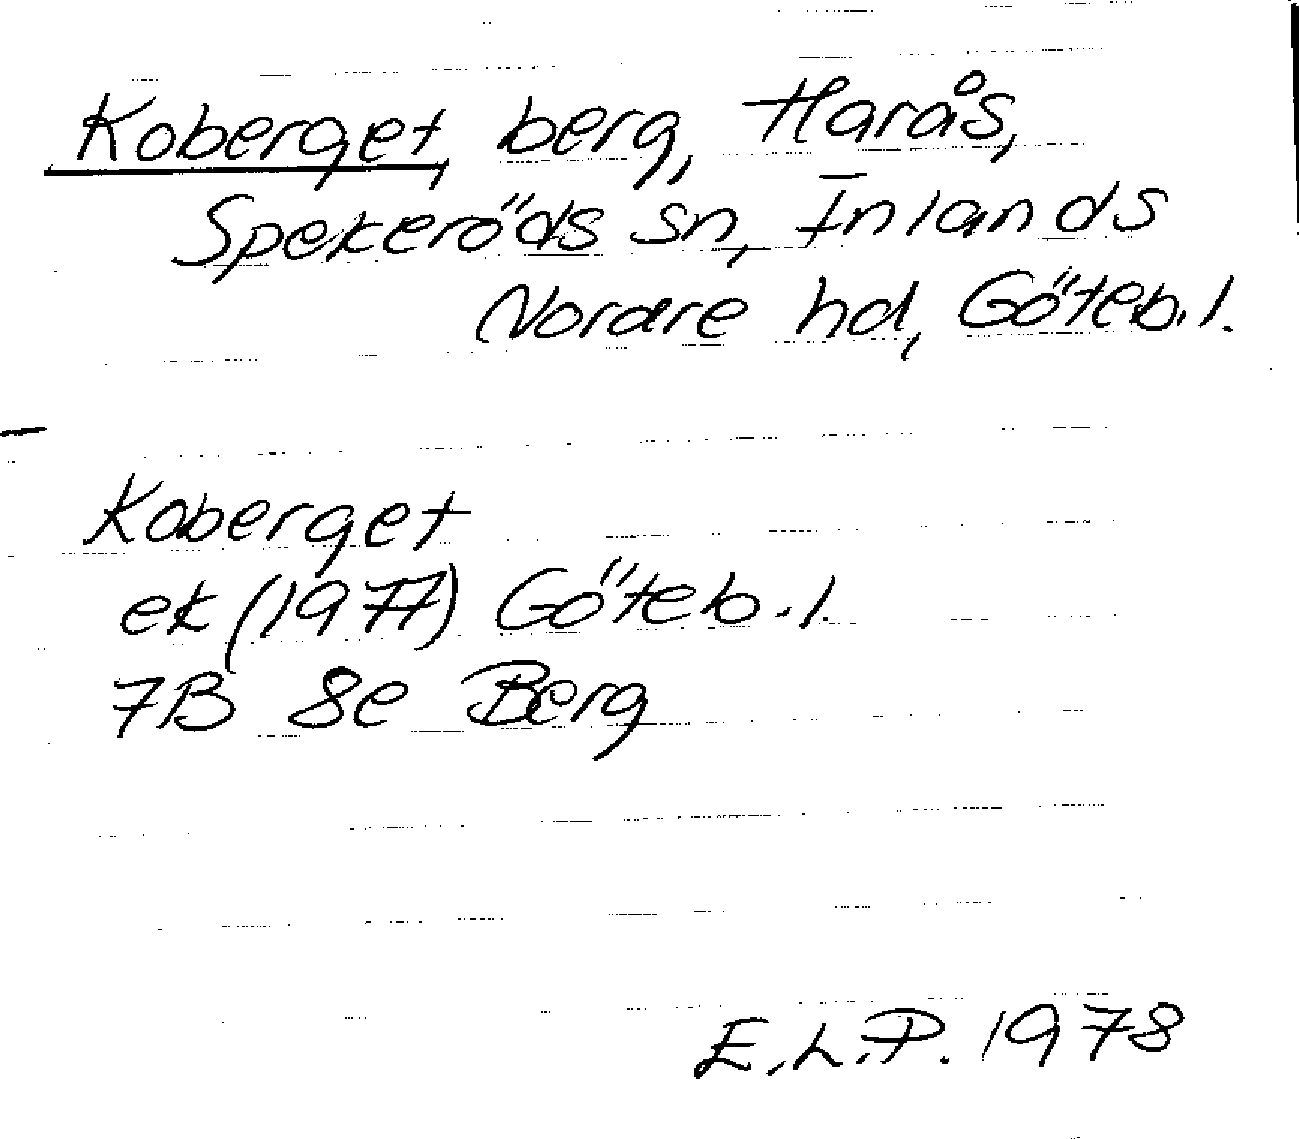 Koberget, berg, Harås,
Spekeröds sn, Inlands
Nordre hd, Göteb.l.
Koberget
ek (1977) Göteb.l.
7B 8e Berg
E.L.P. 1978